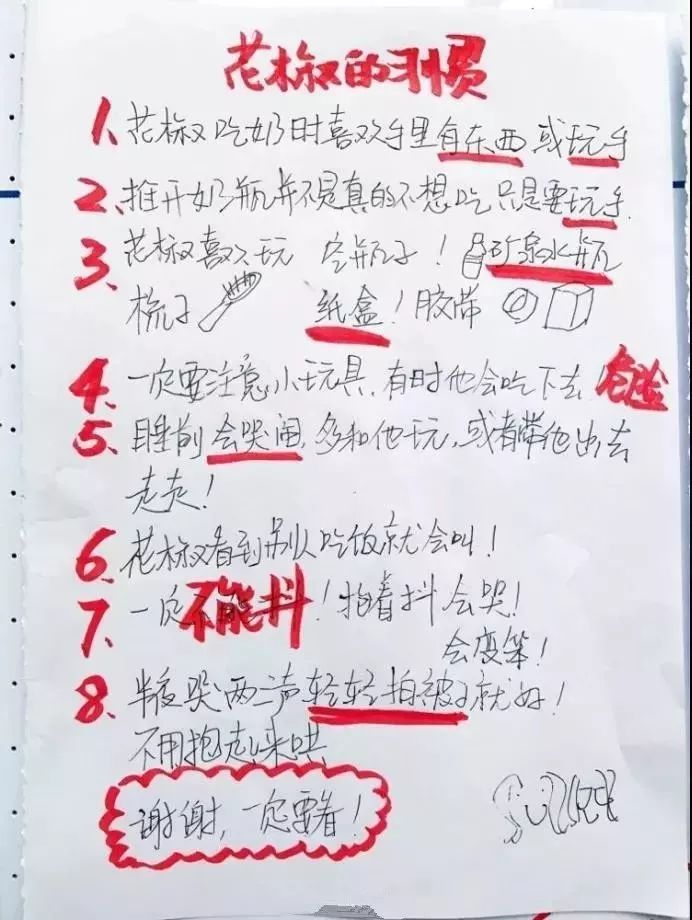 花椒的习惯
1、花椒吃奶时喜欢手里有东西或玩手
2、推开奶瓶并不是真的不想吃只是要玩手.
3、花椒喜欢玩 空瓶子！矿泉水瓶
梳子 纸盒！胶带
4、一定要注意小玩具,有时他会吃下去 危险
5、睡前会哭闹,多和他玩,或者带他出去
走走！
6、花椒看到别人吃饭就会叫！
7、一定不能抖！抱着抖会哭！
会变笨！
8、半夜哭两三声轻轻拍被子就好！
不用抱起来哄
谢谢,一定要看！